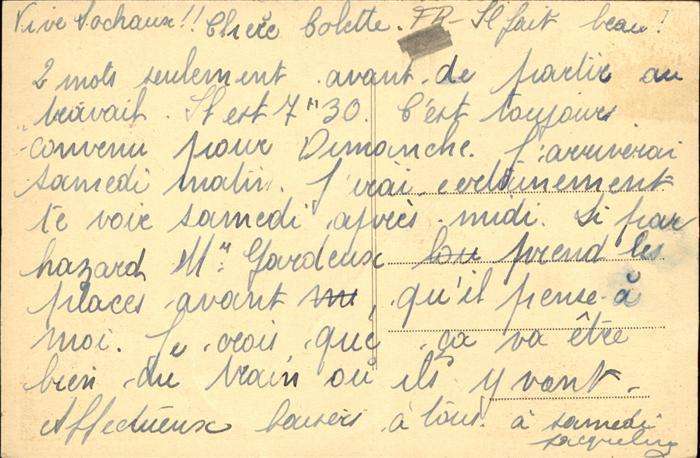 Vive Sochaux!! Chère Colette. FR - Il fait beau!
2 mots seulement avant de partir au
travail. Il est 7h30. C'est toujours
convenu pour Dimanche. J'arriverai
samedi matin. J'irai certainement
te voir samedi après-midi. Si par
hazard Mr Gardeux prend les
places avant qu'il pense à
moi. Je crois que ça va être
bien du train où ils y vont.
Affectueux baisers à tous. à samedi
Jacqueline